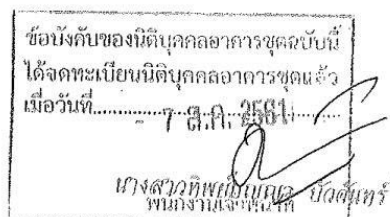 ข้อบังคับของนิติบุคคลอาคารชุดฉบับนี้
ได้จดทะเบียนนิติบุคคลอาคารชุดแล้ว
เมื่อวันที่ - 7 ส.ค. 2561
นางสาวทิพย์ บัวศุ้นทร์
พนักงานเจ้าหน้าที่